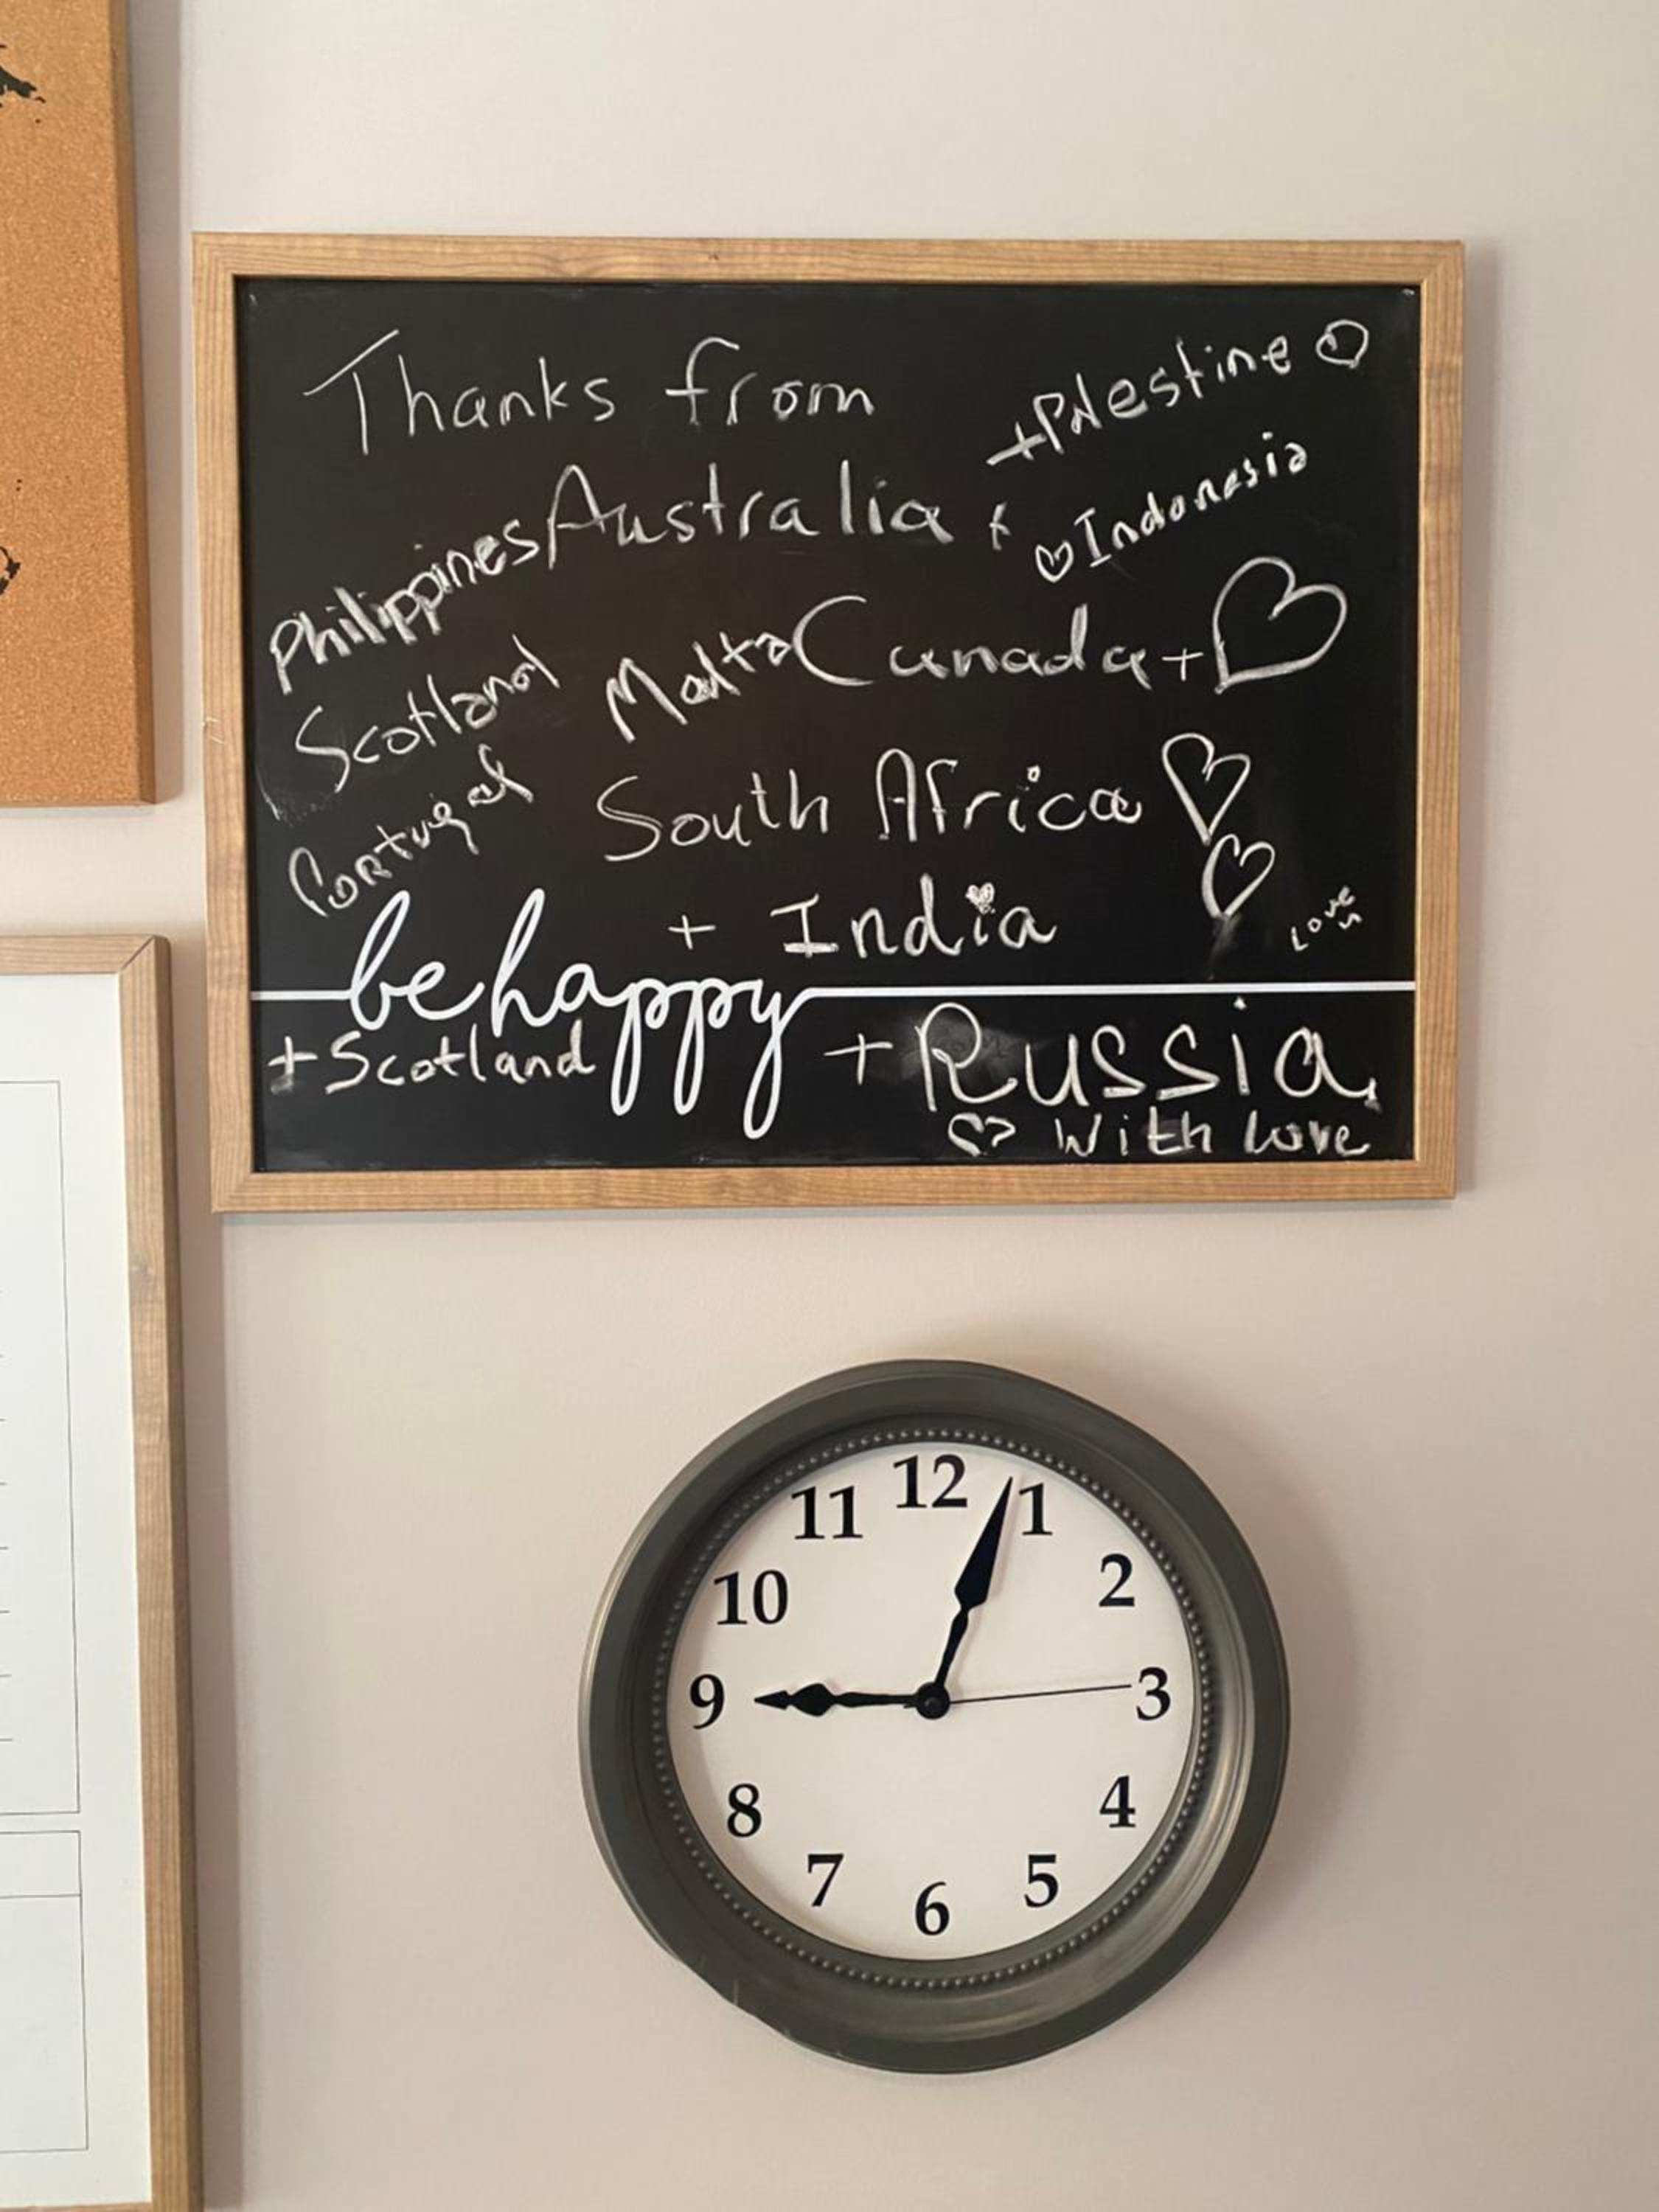 Thanks from
+Palestine
Australia +
Indonesia
Philippines
Malta Canada +
Scotland
South Africa
Portugal
+ India
Love
be happy
+Scotland
+ Russia
With love
12
1
2
3
4
5
6
7
8
9
10
11